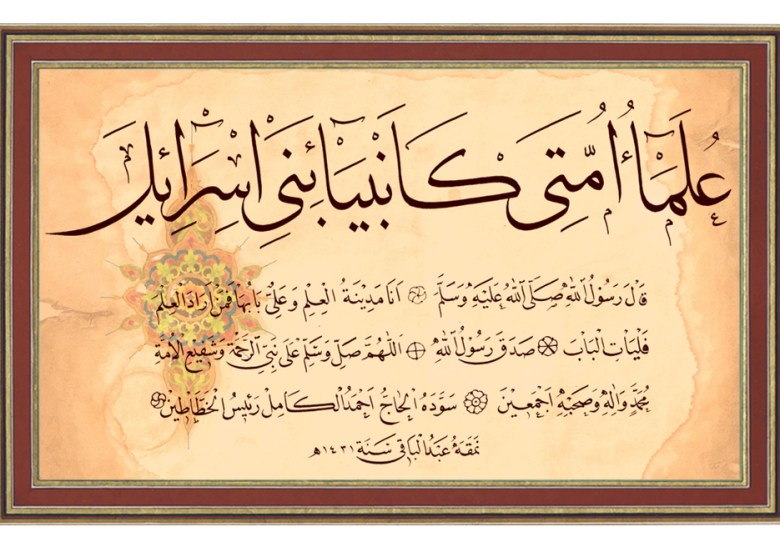 عُلَمَاءُ اُمَّتِى كَاَنْبِيَاءِ بَنِى اِسْرَائِيلَ
قَالَ رَسُولُ اللهِ صَلَّى اللهُ عَلَيْهِ وَسَلَّمَ اَنَا مَدِينَةُ الْعِلْمِ وَعَلِىٌّ بَابُهَا فَمَنْ اَرَادَ الْعِلْمَ
فَلْيَاْتِ الْبَابَ صَدَقَ رَسُولُ اللهِ اَللّٰهُمَّ صَلِّ وَسَلِّمْ عَلَى نَبِىِّ الرَّحْمَةِ وَشَفِيعِ الْاُمَّةِ
مُحَمَّدٍ وَاٰلِهِ وَصَحْبِهِ اَجْمَعِينَ سَوَّدَهُ الْحَاجُّ اَحْمَدُ الْكَامِلُ رَئِيسُ الْخَطَّاطِينَ
نَمَقَهُ عَبْدُ الْبَاقِى سَنَةَ ١٤٣١هـ